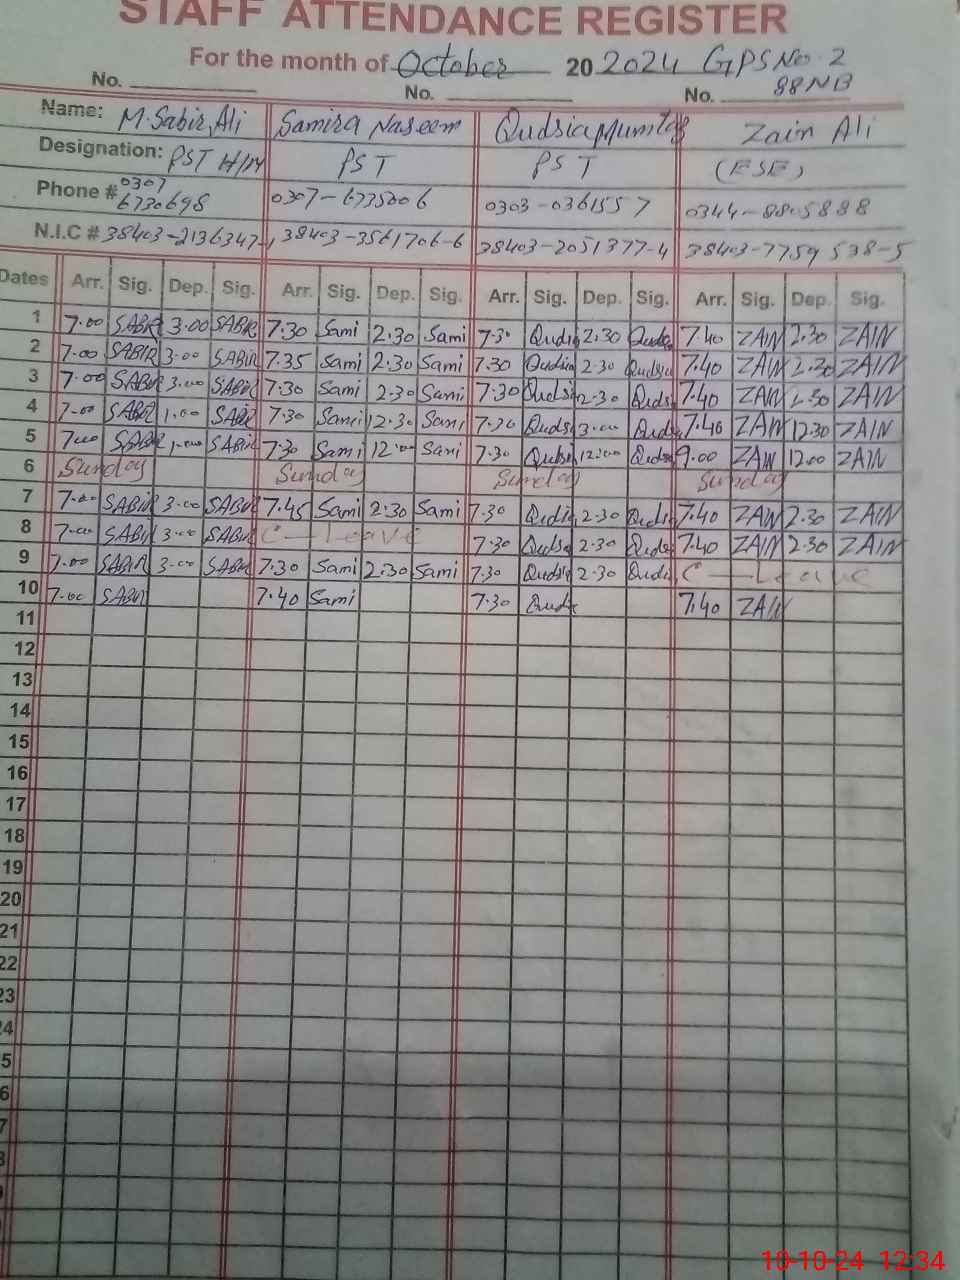 STAFF ATTENDANCE REGISTER
For the month of October 20 2024 GPS No. 2
No. No. No. 88NB
Name: M. Sabir Ali Samira Naseem Qudsia Mumtaz Zain Ali
Designation: PST H/M PST PST (ESE)
Phone # 0307 6730698 0307-6735006 0303-0361557 0344-8805888
N.I.C # 38403-2136347-1 38403-3561706-6 38403-2051377-4 38403-7759538-5
Dates Arr. Sig. Dep. Sig. Arr. Sig. Dep. Sig. Arr. Sig. Dep. Sig. Arr. Sig. Dep. Sig.
1 7.00 SABIR 3.00 SABIR 7.30 Sami 2.30 Sami 7.30 Qudsia 2.30 Qudsia 7.40 ZAIN 2.30 ZAIN
2 7.00 SABIR 3.00 SABIR 7.35 Sami 2.30 Sami 7.30 Qudsia 2.30 Qudsia 7.40 ZAIN 2.30 ZAIN
3 7.00 SABIR 3.00 SABIR 7.30 Sami 2.30 Sami 7.30 Qudsia 2.30 Quds 7.40 ZAIN 2.30 ZAIN
4 7.00 SABIR 1.00 SABIR 7.30 Sami 12.30 Sami 7.30 Quds 3.00 Quds 7.40 ZAIN 12.30 ZAIN
5 7.00 SABIR 1.00 SABIR 7.30 Sami 12.00 Sami 7.30 Qudsi 12:00 Quds 9.00 ZAIN 12.00 ZAIN
6 Sunday Sunday Sunday Sunday
7 7.00 SABIR 3.00 SABIR 7.45 Sami 2.30 Sami 7.30 Qudi 2.30 Qudsi 7.40 ZAIN 2.30 ZAIN
8 7.00 SABIR 3.00 SABIR C-Leave 7.30 Quds 2.30 Quds 7.40 ZAIN 2.30 ZAIN
9 7.00 SABIR 3.00 SABIR 7.30 Sami 2.30 Sami 7.30 Qudsia 2.30 Qudi C-Leave
10 7.00 SABIR 7.40 Sami 7.30 Quds 7.40 ZAIN
11
12
13
14
15
16
17
18
19
20
21
22
23
24
5
6
7
8
10-10-24 12:34